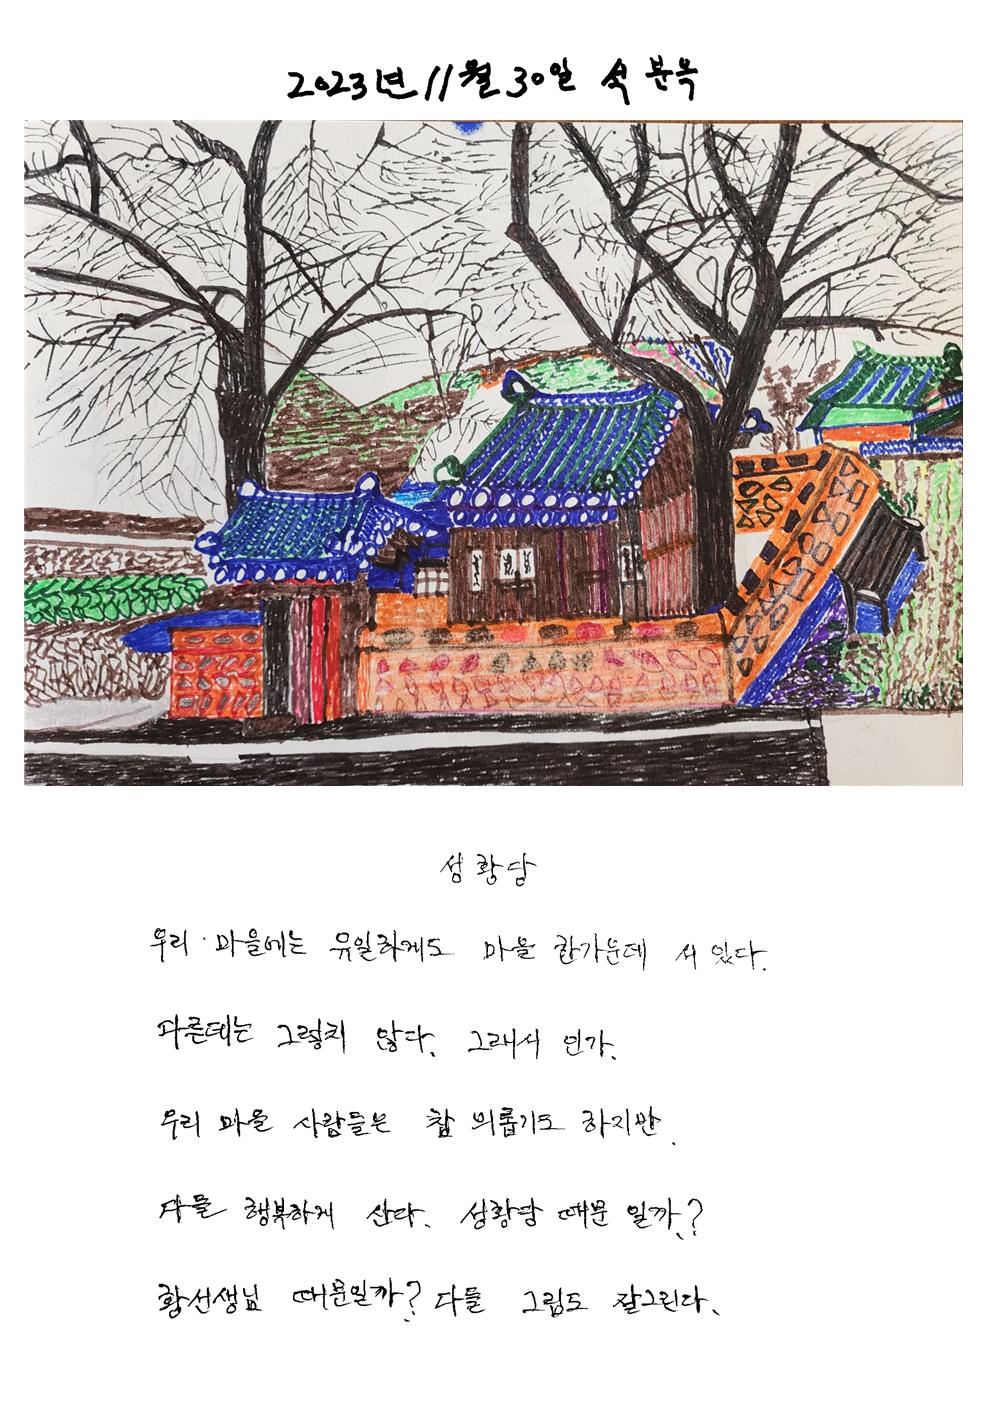 2023년 11월 30일 석 분옥
성황당
우리 마을에는 유일하게도 마을 한가운데 서 있다.
다른데는 그렇치 않다. 그래서 인가.
우리 마을 사람들은 참 의롭기도 하지만.
다들 행복하게 산다. 성황당 때문 일까?
황선생님 때문일까? 다들 그림도 잘그린다.